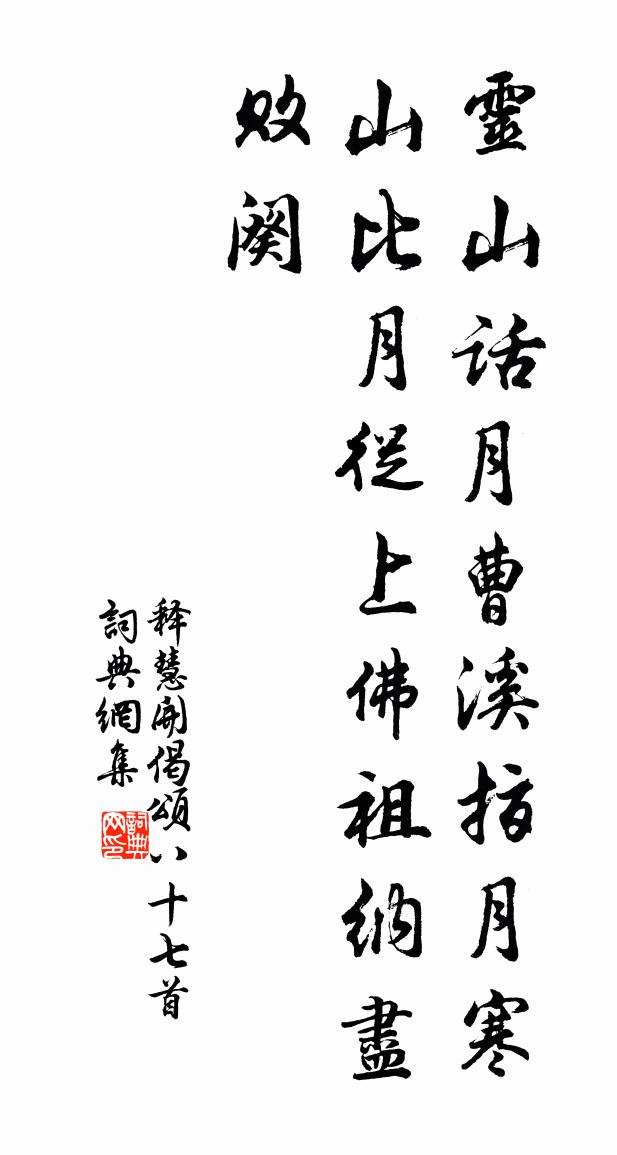 靈山話月曹溪指月寒
山比月從上佛祖納盡
敗闕
释慧開偈頌八十七首
詞典網集
詞典
网印